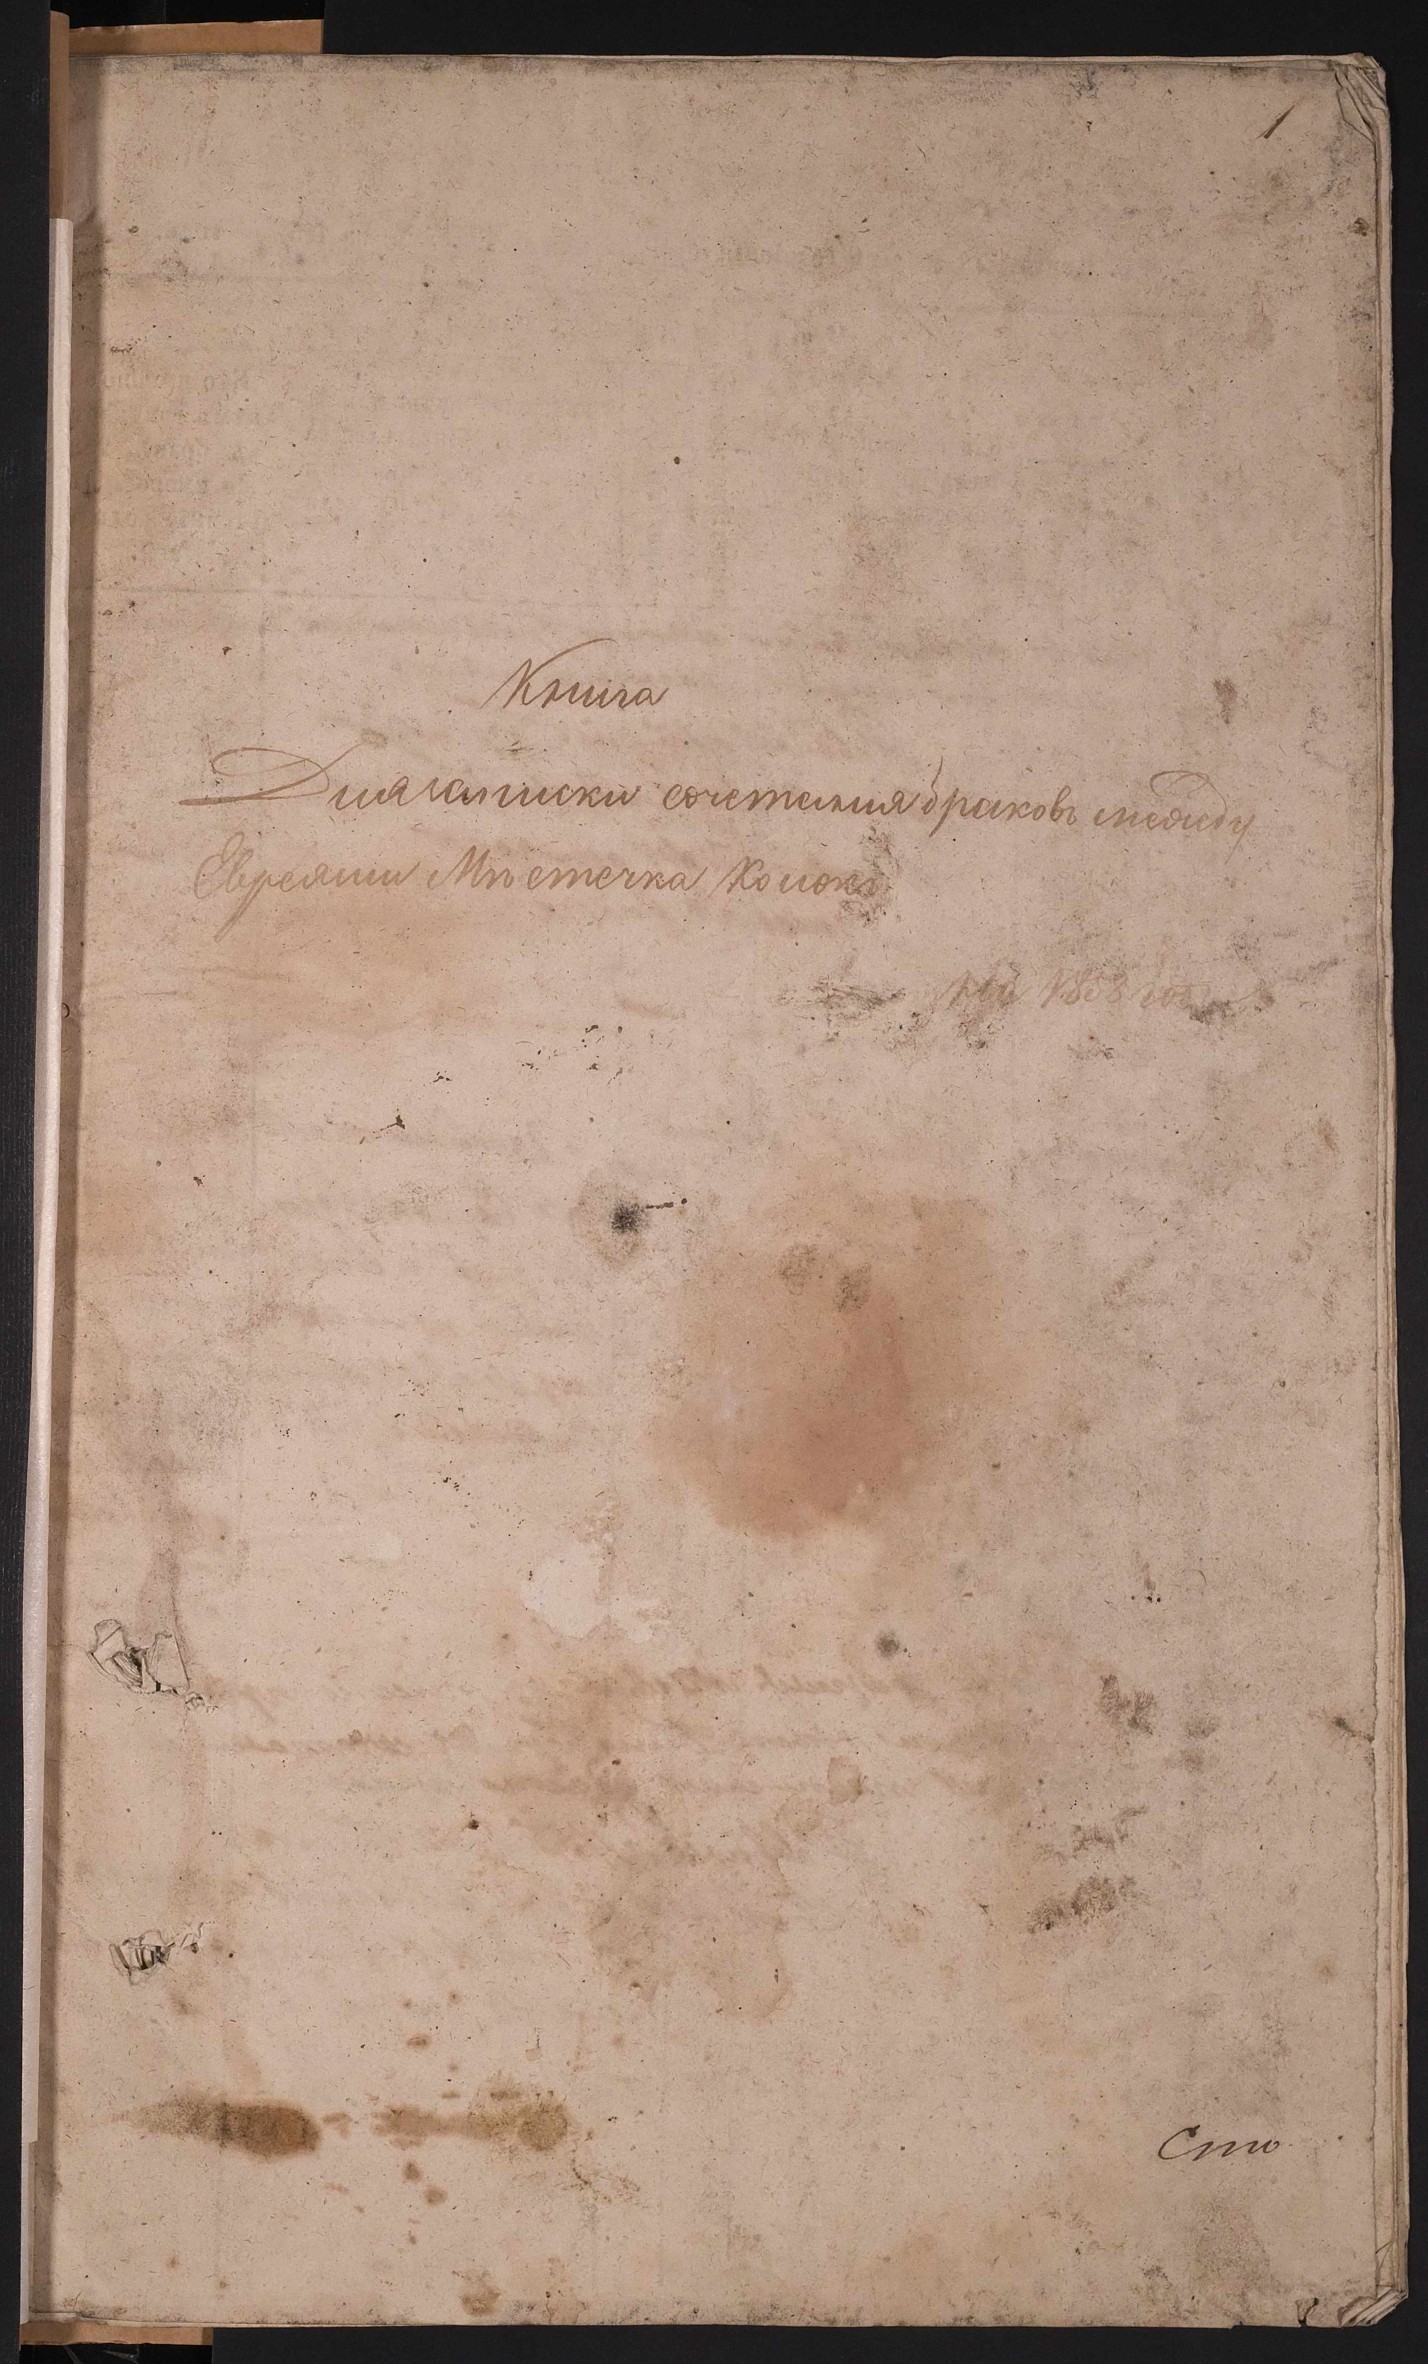 1
Книга
Для записки сочетания браковъ между
Евреями Мѣстечка Колокъ
на 1858 годъ
Сто